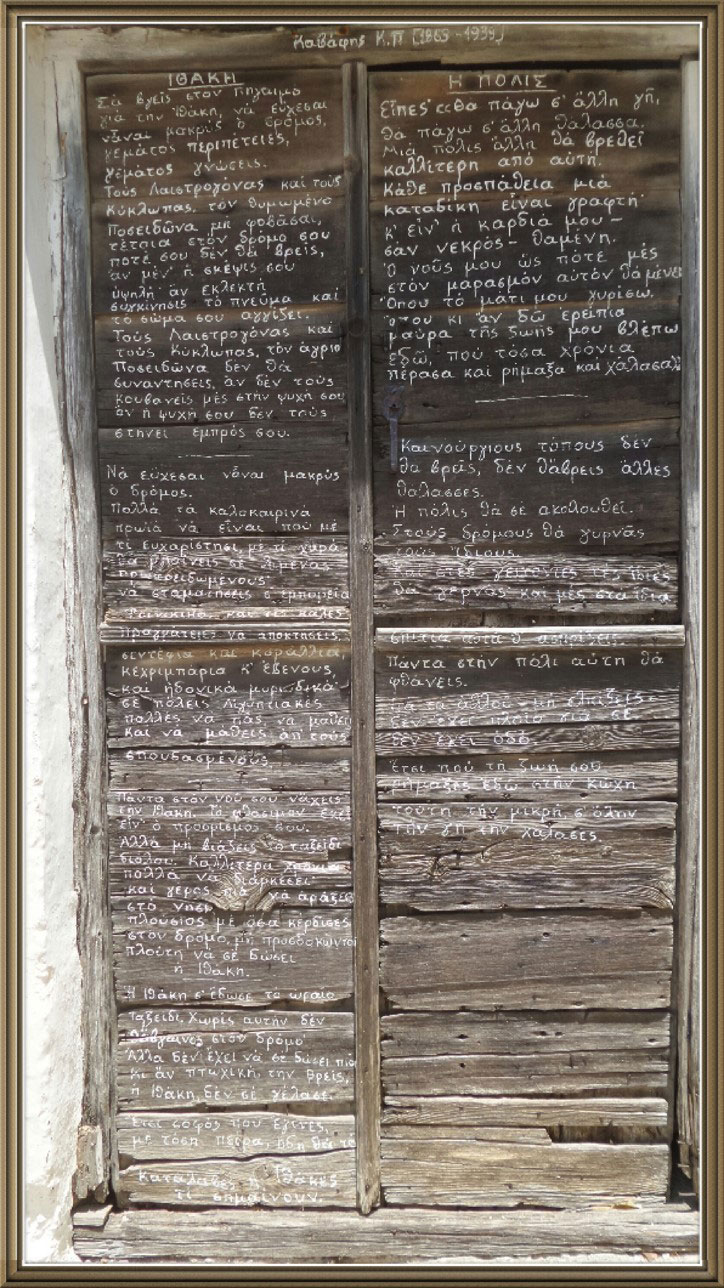 Καβάφης Κ.Π [1863-1933]
ΙΘΑΚΗ
Σὰ βγεῖς στον πηγαιμο
γιὰ τὴν Ἰθάκη, νὰ εὔχεσαι
νἆναι μακρὺς ὁ δρόμος,
γεμάτος περιπέτειες,
γεμάτος γνώσεις.
Τοὺς Λαιστρογόνας καὶ τοὺς
Κύκλωπας, τὸν θυμωμένο
Ποσειδῶνα μη φοβᾶσαι,
τέτοια στὸν δρόμο σου
ποτέ σου δὲν θὰ βρεῖς,
ἂν μέν' ἡ σκέψις σου
ὑψηλὴ ἂν ἐκλεκτὴ
συγκίνησις τὸ πνεῦμα καὶ
τὸ σῶμα σου ἀγγίζει.
Τοὺς Λαιστρογόνας καὶ
τοὺς Κύκλωπας, τὸν ἄγριο
Ποσειδῶνα δεν θὰ
συναντήσεις, ἂν δὲν τοὺς
κουβανεῖς μὲς στὴν ψυχή σου
ἂν ἡ ψυχή σου δὲν τοὺς
στηνει εμπρός σου.
Νὰ εὔχεσαι νἆναι μακρὺς
ὁ δρόμος.
Πολλὰ τὰ καλοκαιρινὰ
πρωϊὰ νὰ εἶναι ποὺ μὲ
τι εὐχαρίστησι, μὲ τὶ χαρὰ
θὰ μπαίνεις σὲ λιμένας
νὰ σταματήσεις σ' ἐμπορεῖα
Φοινικικὰ, και τὲς καλὲς
πραγματειες νὰ αποκτήσεις,
σεντέφια καὶ κοράλλια,
κεχριμπάρια κ' ἔβενους,
και ἡδονικὰ μυρωδικὰ
σὲ πόλεις Αἰγυπτιακὲς
πολλὲς νὰ πᾶς, νὰ μάθεις
καὶ νὰ μάθεις ἀπ' τοὺς
σπουδασμένους
Πάντα στὸν νοῦ σου νἄχεις
τὴν Ἰθάκη. Τὸ φθάσιμον ἐκεῖ
εἶν' ὁ προορισμός σου.
Ἀλλὰ μὴ βιάζεις τὸ ταξεῖδι
διόλου. Καλλίτερα χρόνια
πολλὰ νὰ διαρκέσει
καὶ γέρος πιὰ νὰ ἀράξεις
στὸ νησὶ
πλούσιος μὲ ὅσα κέρδισες
στὸν δρόμο, μὴ προσδοκῶντας
πλούτη νὰ σὲ δώσει
ἡ Ἰθάκη.
Ἡ Ἰθάκη σ' ἔδωσε τὸ ὡραῖο
Ταξεῖδι, Χωρὶς αυτὴν δὲν
θἄβγαινες στὸν δρόμο
Ἀλλα δὲν ἔχει νὰ σὲ δώσει πιὰ
κι ἂν πτωχικὴ, την βρεῖς,
ἡ Ἰθάκη δὲν σὲ γέλασε.
Ετσι σοφὸς ποὺ ἔγινες,
μὲ τόση πεῖρα, ἤδη θὰ τὸ
κατάλαβες ἡ Ἰθάκες
τὶ σημαίνουν.
Η ΠΟΛΙΣ
Εἶπες' «Θὰ πάγω σ' ἄλλη γῆ,
θὰ πάγω σ' ἄλλη θάλασσα.
Μιὰ πόλις ἄλλη θὰ βρεθεῖ
καλλίτερη ἀπὸ αὐτή.
Κάθε προσπάθεια μιὰ
καταδίκη εἶναι γραφτὴ
κ' εἶν' ἡ καρδιὰ μου -
σὰν νεκρὸς - θαμένη.
Ὁ νοῦς μου ὡς πότε μὲς
στὸν μαρασμὸν αὐτὸν θὰ μένει
Ὅπου τὸ μάτι μου γυρίσω,
ὅπου κι ἂν δῶ ἐρείπια
μαῦρα τῆς ζωῆς μου βλέπω
ἐδῶ, ποὺ τόσα χρόνια
πέρασα καὶ ρήμαξα καὶ χάλασα»
Καινούργιους τόπους δὲν
θα βρεῖς, δὲν θἄβρεις ἄλλες
θάλασσες.
Ἡ πόλις θὰ σὲ ἀκολουθεῖ.
Στοὺς δρόμους θὰ γυρνᾶς
τοὺς ἴδιους.
Καὶ στὲς γειτονιὲς τὲς ἴδιες
θὰ γερνᾶς καὶ μὲς στὰ ἴδια
σπίτια αὐτὰ θ' ἀσπρίζεις.
Πάντα στὴν πόλι αὐτὴ θὰ
φθάνεις.
Γιὰ τὰ ἀλλοῦ - μὴ ἐλπίζεις -
δὲν ἔχει πλοῖο γιὰ σὲ
δὲν ἔχει ὁδὸ
Ἔτσι ποὺ τὴ ζωή σου
ρήμαξες ἐδῶ στὴν κώχη
τούτη τὴν μικρή, σ' ὅλην
τὴν γῆ τὴν χάλασες.